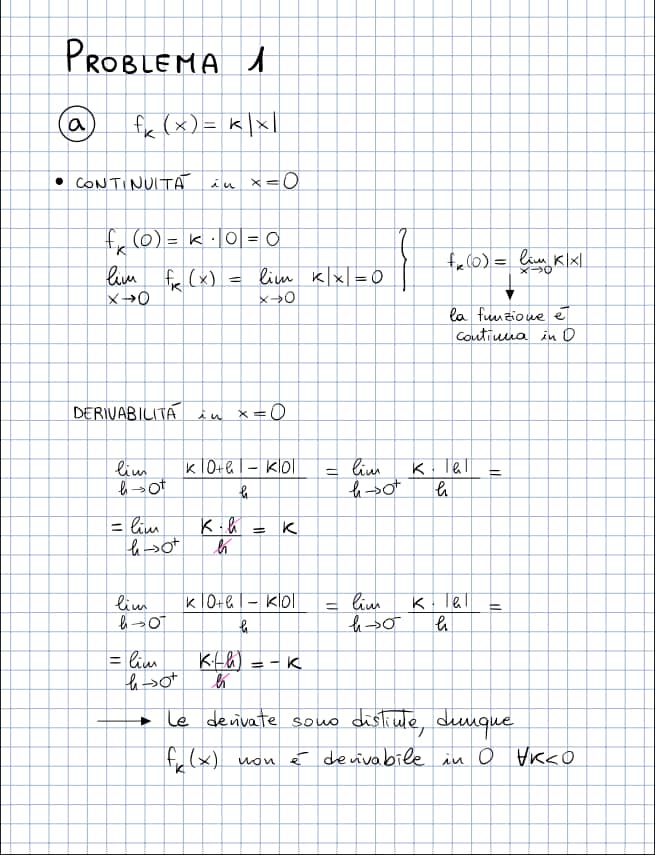 PROBLEMA 1
ⓐ fₖ(x) = k|x|
• CONTINUITÀ in x=0
fₖ(0) = k·|0| = 0
lim x→0 fₖ(x) = lim x→0 k|x| = 0
fₖ(0) = lim x→0 k|x|
↓
la funzione è
continua in 0
DERIVABILITÀ in x=0
lim h→0⁺ (k|0+h| - k|0|)/h = lim h→0⁺ (k·|h|)/h =
= lim h→0⁺ (k·h)/h = k
lim h→0⁻ (k|0+h| - k|0|)/h = lim h→0⁻ (k·|h|)/h =
= lim h→0⁺ (k·(-h))/h = -k
→ Le derivate sono distinte, dunque
fₖ(x) non è derivabile in 0 ∀k<0